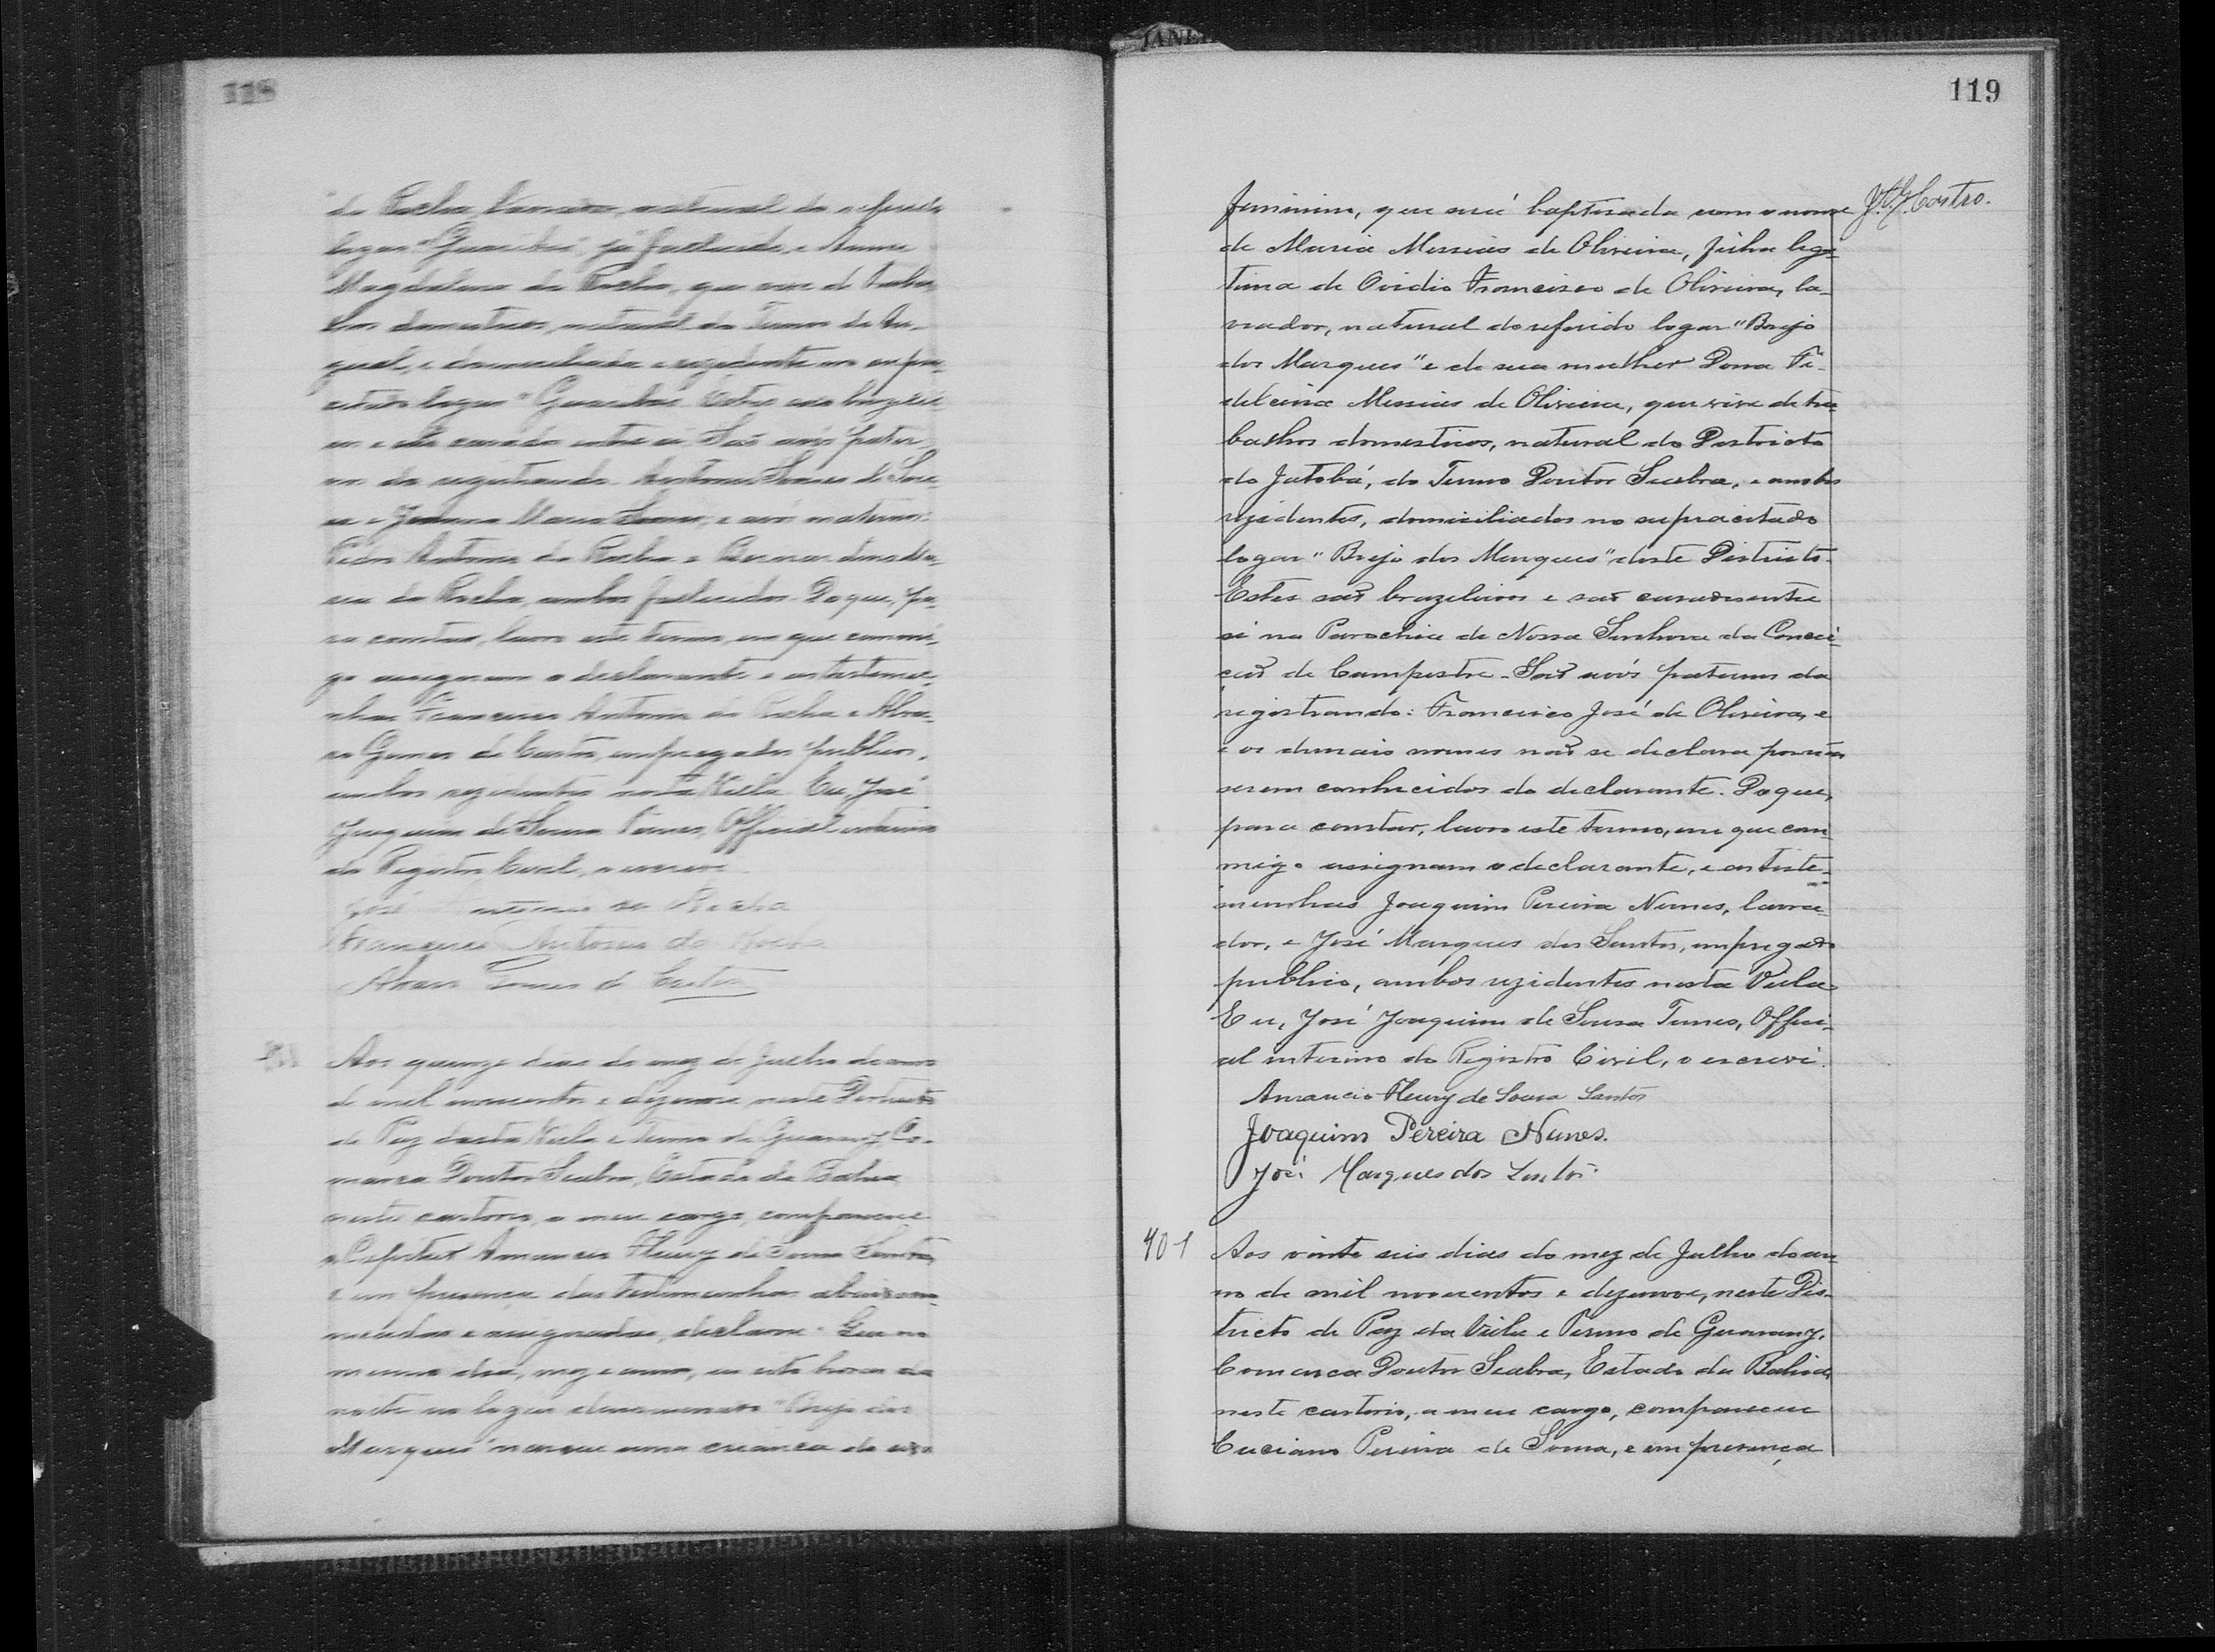 JANEI
118
da Rocha, lavrador, natural do referido
logar "Guaribas", já fallecido, e Anna
Magdalena da Rocha, que vive de traba-
lhos domesticos, natural do Termo de
e domiciliada e rezidente no supra-
citado logar "Guaribas". Estes são brazilei-
ros e são casados entre si. São avós pater-
nos da registranda: Antonio Soares de Sou-
sa e Joanna Maria Soares, e avós maternos:
Antonio da Rocha e
da Rocha, ambos fallecidos. Do que, pa-
ra constar, lavro este termo, em que commi-
go assignam o declarante e as testemu-
nhas Francisco Antonio da Rocha e Alva-
ro Gomes de Castro, empregados publicos,
ambos rezidentes nesta Villa. Eu, José
Joaquim de Sousa Tunes, Official interino
do Registro Civil, o escrevi.
José Antonio da Rocha
Francisco Antonio da Rocha
Alvaro Gomes de Castro
Aos quinze dias do mez de Julho do anno
de mil novecentos e dezenove, neste Districto
de Paz desta Villa e Termo de Guarany, Co-
marca Doutor Seabra, Estado da Bahia,
neste cartorio, a meu cargo, compareceu
o Capitão Amancio Fleury de Sousa Santos,
e em presença das testemunhas abaixo no-
meadas e assignadas, declarou: Que no
mesmo dia, mez e anno, as oito horas da
noite no logar denominado "Brejo dos
Marques" nasceu uma creança do sexo
119
feminino, que será baptisada com o nome
J. A. G. Castro.
de Maria Messias de Oliveira, filha legi-
tima de Ovidio Francisco de Oliveira, la-
vrador, natural do referido logar "Brejo
dos Marques" e de sua mulher Dona Fi-
delcina Messias de Oliveira, que vive de tra-
balhos domesticos, natural do Districto
do Jatobá, do Termo Doutor Seabra, e ambos
rezidentes, domiciliados no supracitado
logar "Brejo dos Marques" deste Districto.
Estes são brazileiros e são casados entre
si na Parochia de Nossa Senhora da Concei-
ção de Campestre. São avós paternos da
registrando: Francisco José de Oliveira, e
e os demais nomes não se declara por não
serem conhecidos do declarante. Do que,
para constar, lavro este termo, em que com-
migo assignam o declarante, e as teste-
munhas Joaquim Pereira Nunes, lavra-
dor, e José Marques dos Santos, empregado
publico, ambos rezidentes nesta Villa.
Eu, José Joaquim de Sousa Tunes, Offici-
al interino do Registro Civil, o escrevi.
Amancio Fleury de Sousa Santos
Joaquim Pereira Nunes.
José Marques dos Santos.
401
Aos vinte seis dias do mez de Julho do an-
no de mil novecentos e dezenove, neste Dis-
tricto de Paz da Villa e Termo de Guarany,
Comarca Doutor Seabra, Estado da Bahia,
neste cartorio, a meu cargo, compareceu
Luciano Pereira de Sousa, e em presença